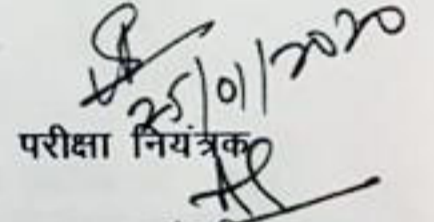 25/01/2020
परीक्षा नियंत्रक